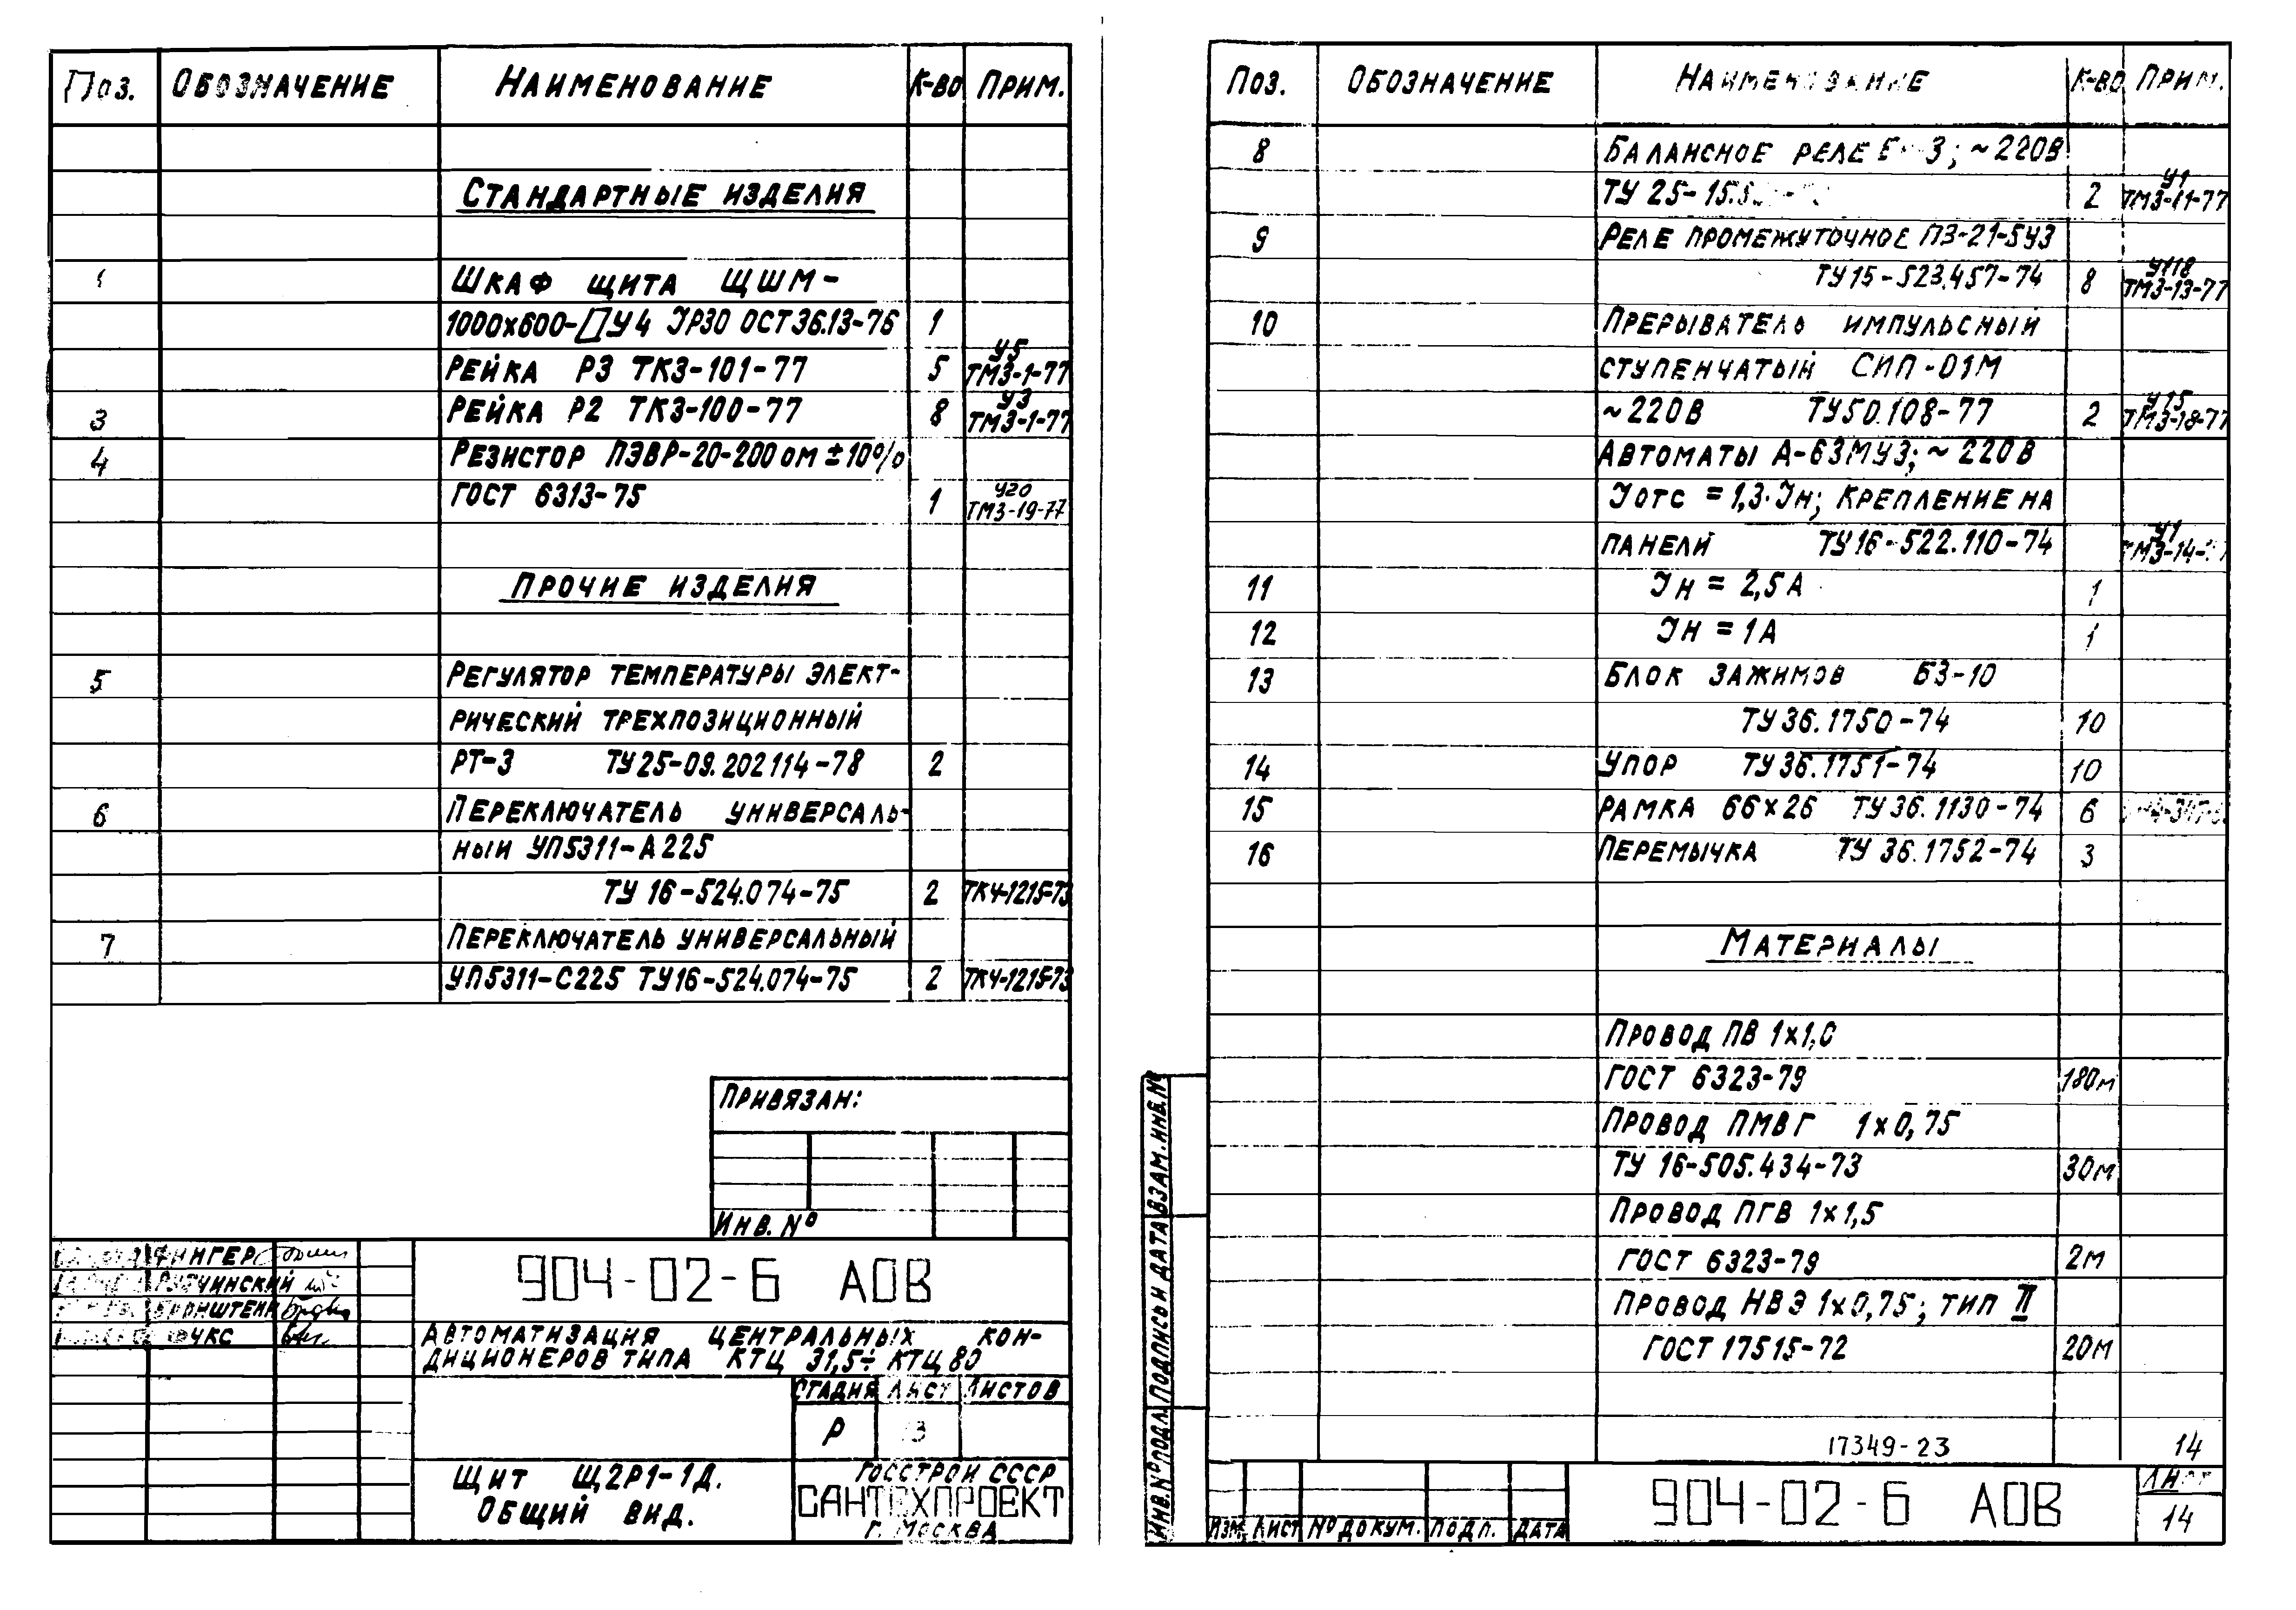 Поз. Обозначение Наименование К-во Прим.
Стандартные изделия
1 Шкаф щита ЩШМ-
1000х600-▱У4 IP30 ОСТ36.13-76 1
У5
Рейка Р3 ТК3-101-77 5 ТМ3-1-77
У3
3 Рейка Р2 ТК3-100-77 8 ТМ3-1-77
4 Резистор ПЭВР-20-200 ом ±10%
ГОСТ 6313-75 1 У20
ТМ3-19-77
Прочие изделия
5 Регулятор температуры элект-
рический трехпозиционный
РТ-3 ТУ25-09.202114-78 2
6 Переключатель универсаль-
ный УП5311-А225
ТУ 16-524.074-75 2 ТК4-1215-73
7 Переключатель универсальный
УП5311-С225 ТУ16-524.074-75 2 ТК4-1215-73
Привязан:
Инв. №
904-02-6 АОВ
Автоматизация центральных кон-
диционеров типа КТЦ 31,5÷КТЦ 80
Стадия Лист Листов
Р 13
Щит Щ2Р1-1Д.
Общий вид.
Госстрой СССР
САНТЕХПРОЕКТ
г. Москва
Поз. Обозначение Наименование К-во Прим.
8 Балансное реле 3; ~220В
У1
ТУ 25- 2 ТМ3-11-77
9 Реле промежуточное ПЭ-21-5У3
У118
ТУ15-523.457-74 8 ТМ3-13-77
10 Прерыватель импульсный
ступенчатый СИП-01М
У15
~220В ТУ50.108-77 2 ТМ3-18-77
Автоматы А-63МУ3; ~220В
Iотс = 1,3·Iн; крепление на
У1
панели ТУ16-522.110-74 ТМ3-14-
11 Iн = 2,5А 1
12 Iн = 1А 1
13 Блок зажимов БЗ-10
ТУ36.1750-74 10
14 Упор ТУ36.1751-74 10
15 Рамка 66х26 ТУ36.1130-74 6
16 Перемычка ТУ 36.1752-74 3
Материалы
Провод ПВ 1х1,0
ГОСТ 6323-79 180м
Провод ПМВГ 1х0,75
ТУ 16-505.434-73 30м
Провод ПГВ 1х1,5
ГОСТ 6323-79 2м
Провод НВЭ 1х0,75; тип II
ГОСТ 17515-72 20м
17349-23 14
Инв. № подл. Подпись и дата Взам. инв. №
Изм. Лист № докум. Подп. Дата
904-02-6 АОВ
Лист
14